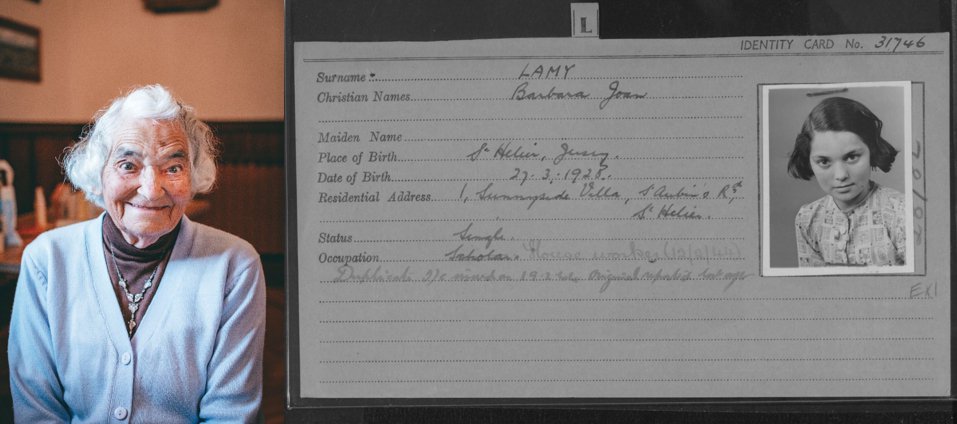 L
IDENTITY CARD No. 31746
Surname LAMY
Christian Names Barbara Joan
Maiden Name
Place of Birth St Helier, Jersey.
Date of Birth 27.3.1928.
Residential Address 1, Sunnyside Villa, St Aubin's Rd,
St Helier.
Status Single.
Occupation Scholar. House worker
Duplicate I/c issued on Original reported lost